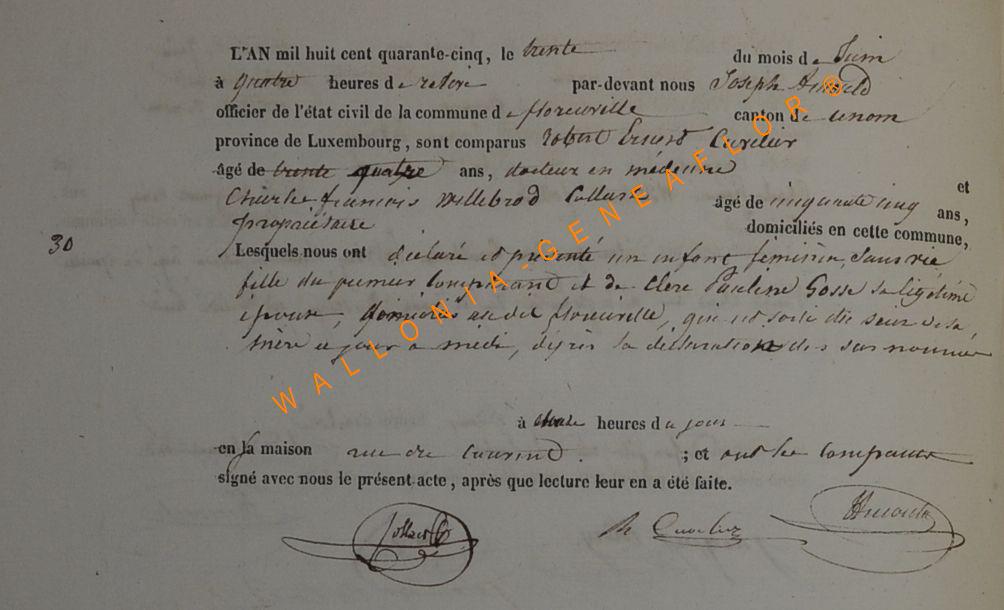 L'AN mil huit cent quarante-cinq, le trente du mois de Juin
à quatre heures de relevé par-devant nous Joseph Arnould
officier de l'état civil de la commune de florenville canton de
province de Luxembourg, sont comparus Robert
âgé de trente quatre ans, docteur en médecine et
Charles françois Willebrod Collard âgé de cinquante cinq ans,
propriétaire domiciliés en cette commune,
30
Lesquels nous ont déclaré et présenté un enfant féminin, sans vie
fille du premier comparant et de Clere Pauline Gosse sa légitime
épouse, domiciliés au dit florenville, qui est sorti du sein de sa
mère ce jour à midi, d'après la déclaration des sus nommés
à douze heures du jour
en sa maison rue de ; et ont les comparants
signé avec nous le présent acte, après que lecture leur en a été faite.
Collard
WALLONIA-GENEAFLOR®